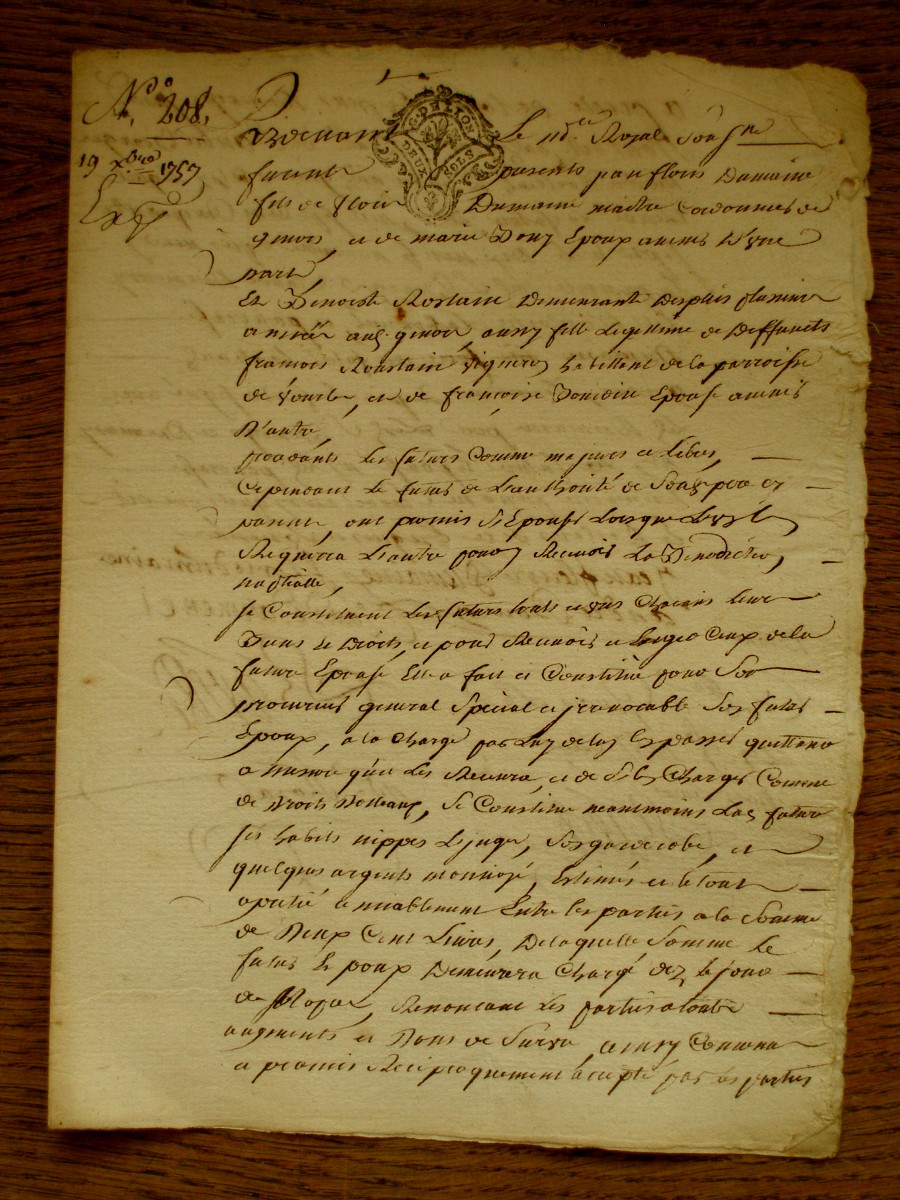 N.° 208.
19 xbre 1757
G. DE LYON
DEUX SOLS
Le no.re Royal Sousig.ne
furent presents pau flori Dumaine
fils de flori Dumaine maitre Cordonnier de
et de marie Epoux a une
part,
Et Benoiste Rostaine Demeurante Depuis plusieurs
années aud. aussy fille Legettime de Deffuncts
francois Roustain vigneron habittant de la parroisse
de vourle, et de francoise Epouse a unes
D'autre,
procedants Les futurs Comme majeurs et Libres,
Cependant Le futur de L'authorité de Sond. pere et
ont promis S'Epouser Lorsque L'un
Requerra L'autre pour Recevoir La Benediction
nuptialle,
Se Constituent Les futurs touts et uns Chacuns Leurs
Biens et Droits, et pour Recevoir et Exiger Ceux de la
future Epouse Elle a fait et Constitué pour Son
procureur general Special et jrrevocable Son futur
Epoux, a la Charge par Luy de Les passer quittance
a mesure qu'il Les Recevra, et de S'En Charger Comme
de Droits Dottaux, Se Constitue neantmoins Lad. future
Ses habits nippes Linges, Son garderobe, et
quelques argents monnoyé, Estimés et le tout
aprecié amiablement Entre Les parties a la Somme
de Deux Cent Livres, De laquelle Somme Le
futur Epoux Demeurera Chargé dez le jour
de Nopces, Renoncant Les parties a toute
augments et Dons de Survie, ainsy Convenu
et promis Reciproquement accepté par les parties